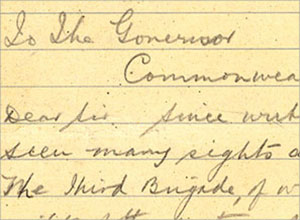 To The Governor
Commonwea
Dear Sir. Since writ
seen many sights a
The Third Brigade, of w